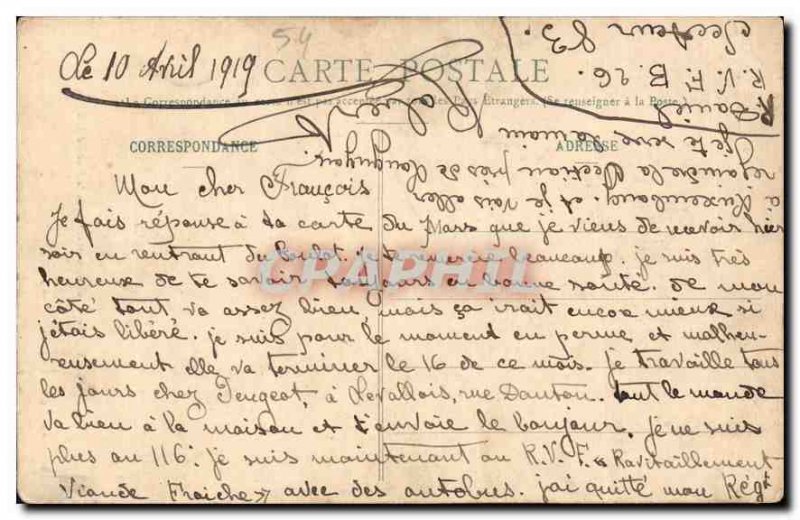 Le 10 Avril 1919
54
CARTE POSTALE
La Correspondance au recto n'est pas acceptée par tous les Pays Étrangers. (Se renseigner à la Poste.)
CORRESPONDANCE
ADRESSE
Mon cher François
Je fais réponse à ta carte du Mars que je viens de recevoir hier
soir en rentrant du boulot. je te remercie beaucoup. je suis très
heureux de te savoir toujours en bonne santé. de mon
côté tout va assez bien, mais ça irait encore mieux si
j'étais libéré. je suis pour le moment en perme et malheu-
reusement elle va terminer le 16 de ce mois. je travaille tous
les jours chez Peugeot, à Levallois, rue Danton. tout le monde
va bien à la maison et t'envoie le bonjour. je ne suis
plus au 116. je suis maintenant au R.V.F. « Ravitaillement
Viande Fraiche » avec des autobus. j'ai quitté mon Régt
à Luxembourg. et je vais aller
rejoindre la Section près de
Je te serre la main
Robert
R.V.F. B. 26.
Secteur 83.
CPAPHIL